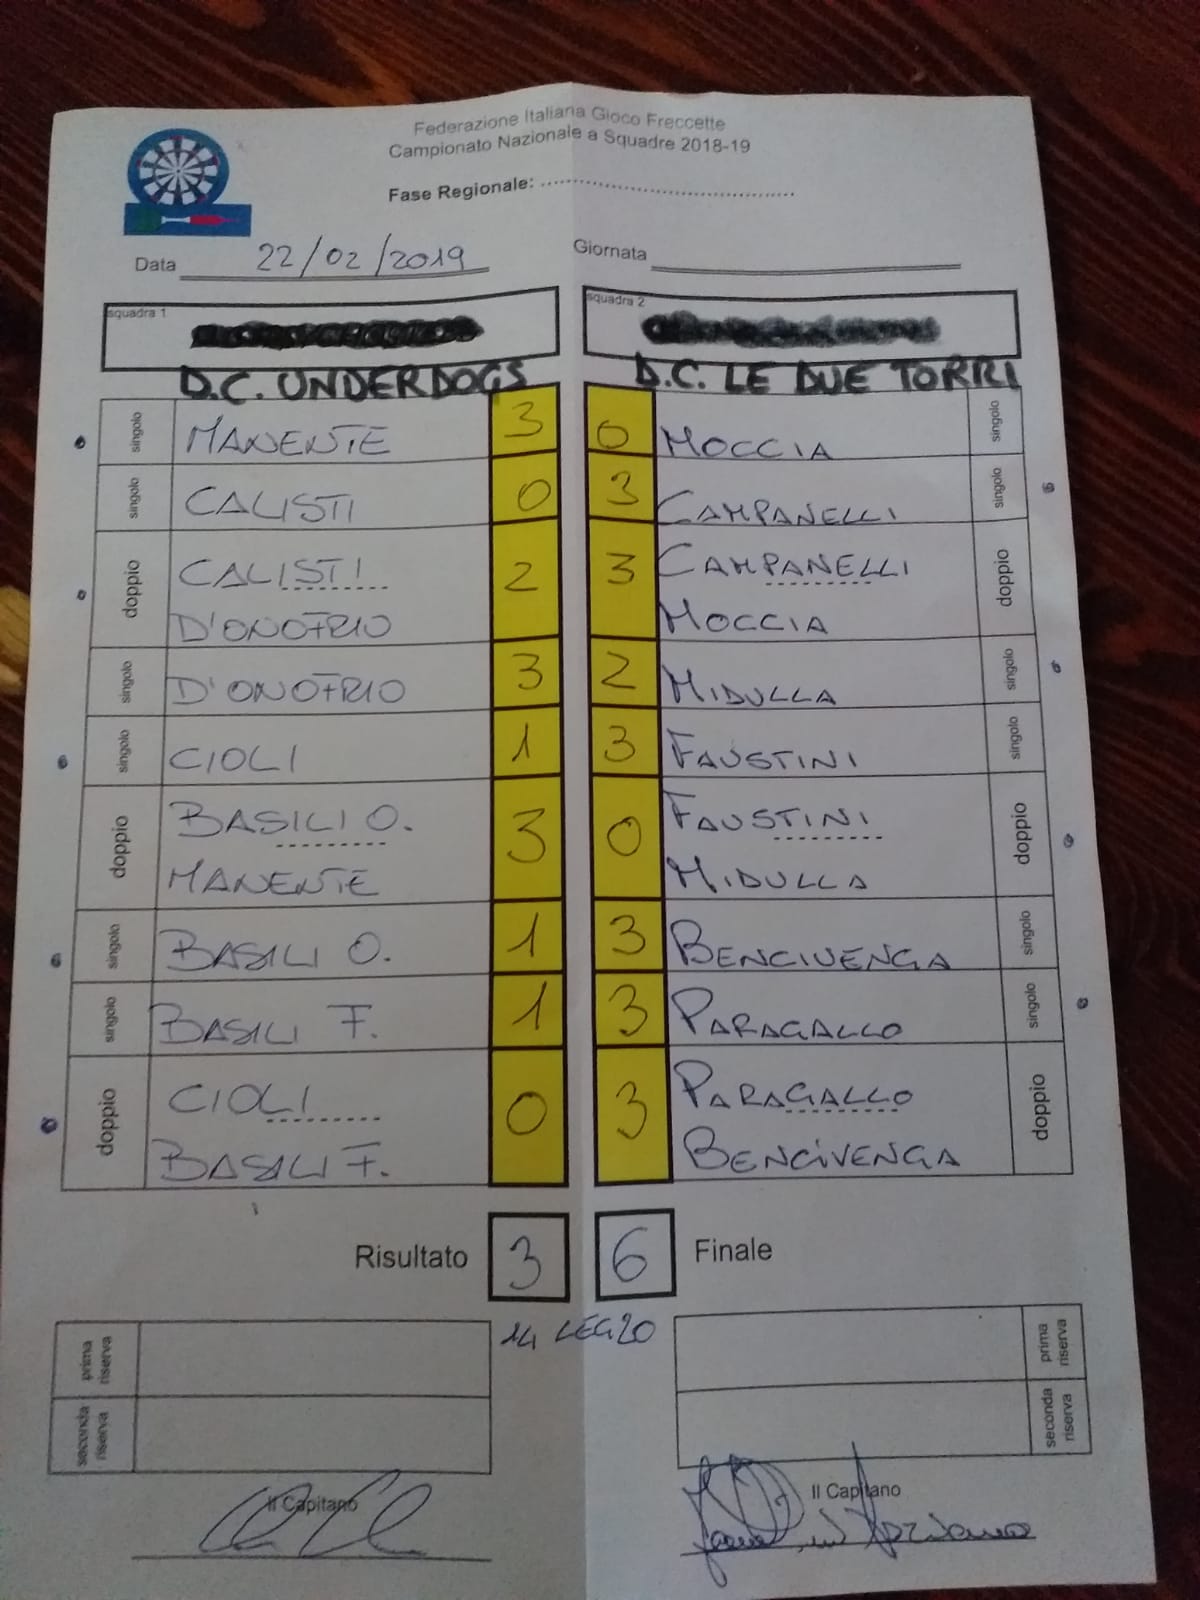 Federazione Italiana Gioco Freccette
Campionato Nazionale a Squadre 2018-19
Fase Regionale:
Data 22/02/2019 Giornata
squadra 1 squadra 2
D.C. UNDERDOGS D.C. LE DUE TORRI
singolo MANENTE 3 0 MOCCIA singolo
singolo CALISTI 0 3 CAMPANELLI singolo
doppio CALISTI 2 3 CAMPANELLI doppio
D'ONOFRIO MOCCIA
singolo D'ONOFRIO 3 2 MIDULLA singolo
singolo CIOLI 1 3 FAUSTINI singolo
doppio BASILI O. 3 0 FAUSTINI doppio
MANENTE MIDULLA
singolo BASILI O. 1 3 BENCIVENGA singolo
singolo BASILI F. 1 3 PARAGALLO singolo
doppio CIOLI 0 3 PARAGALLO doppio
BASILI F. BENCIVENGA
Risultato 3 6 Finale
14 LEG 20
prima riserva prima riserva
seconda riserva seconda riserva
Il Capitano Il Capitano